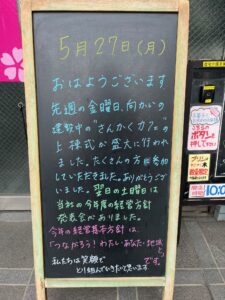 5月27日(月)
おはようございます
先週の金曜日、向かいの
建設中の"さんかくカフェ"の
上棟式が盛大に行われ
ました。たくさんの方に参加
していただきました。ありがとうござ
いました。翌日の土曜日は
当社の今年度の経営方針
発表会がありました。
今年の経営基本方針は、
「つながろう!わたし・あなた・地域と」
です。
私たちは笑顔で
とり組んでいきたいと思います
ボタンを
押して下さい